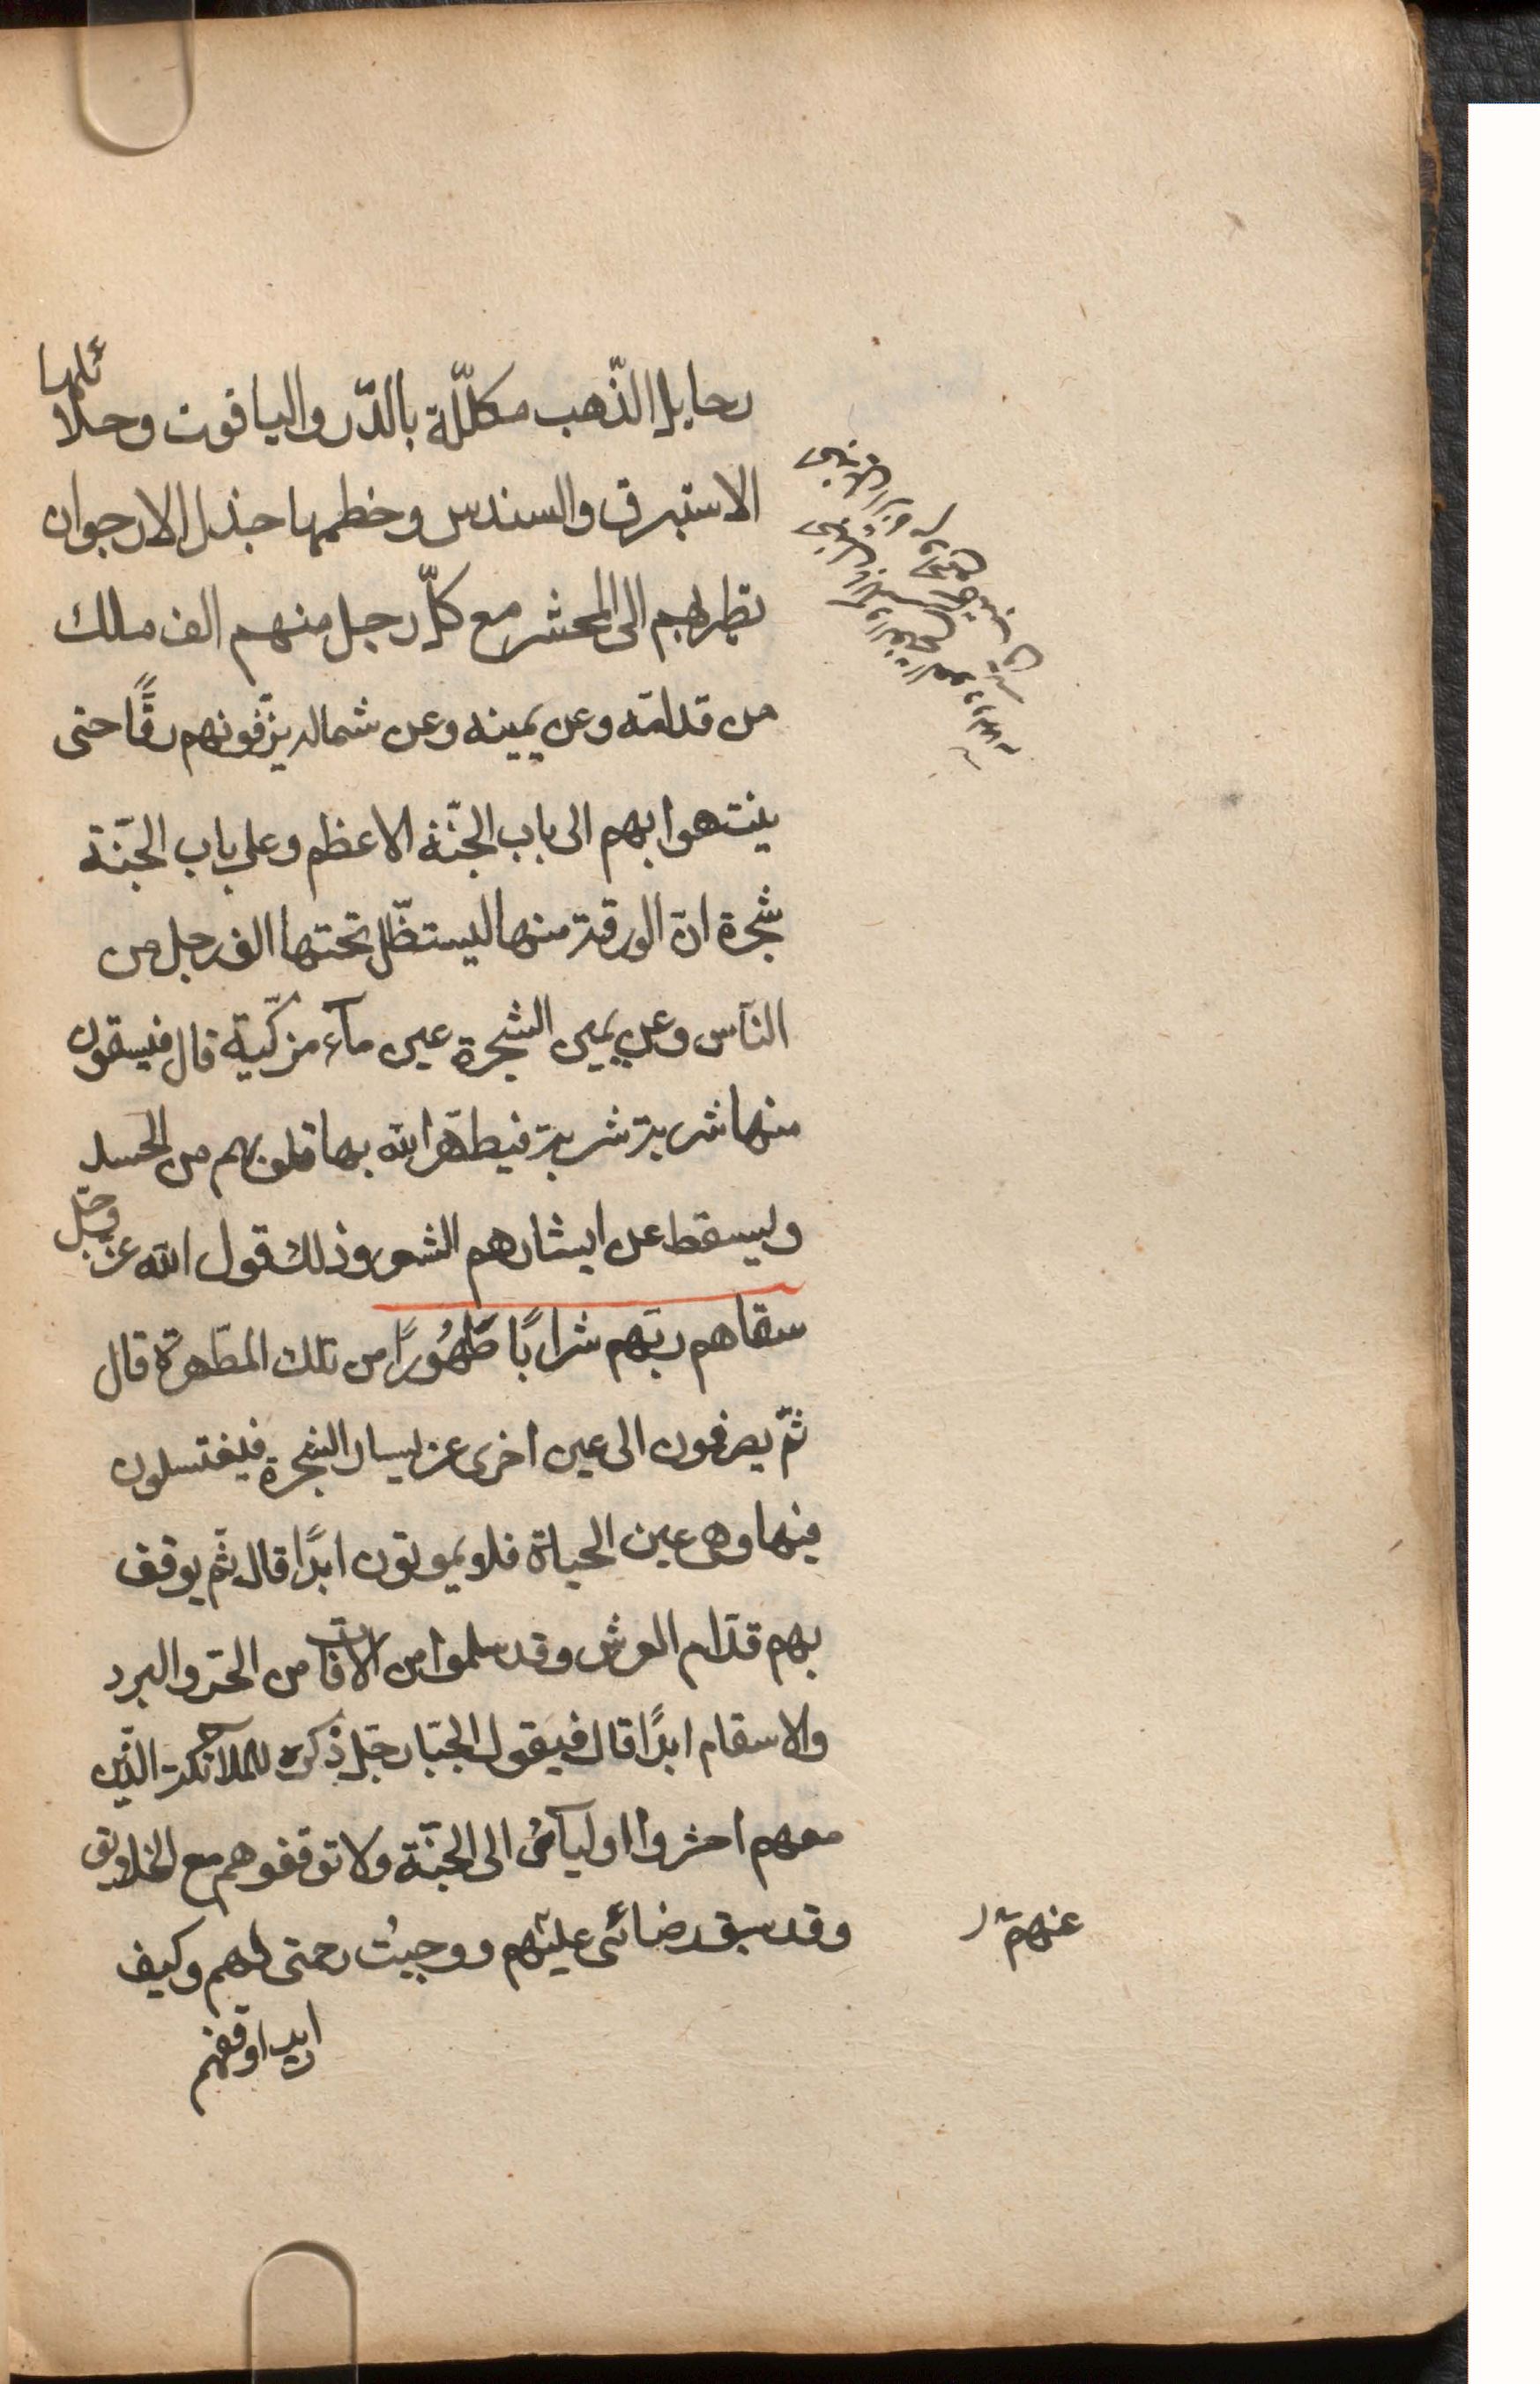 رحايل الذّهب مكلّلة بالدّر والياقوت وجلائلها
الاستبرق والسندس وخطمها جذل الارجوان
تطير بهم الى المحشر مع كلّ رجل منهم الف ملك
من قدامه وعن يمينه وعن شماله يزّفونهم زفًّا حتى
ينتهوا بهم الى باب الجنّة الاعظم وعلى باب الجنّة
شجرة انّ الورقة منها ليستظّل تحتها الف رجل من
النّاس وعن يمين الشجرة عين مآء مزكّية قال فيسقون
منها شربة شربة فيطهّر الله بها قلوبهم من الحسد
ويسقط عن ابشارهم الشعر وذلك قول الله عزّ وجّل
سقاهم ربّهم شرابًا طَهُورًا من تلك المطّهرة قال
ثمّ يصرفون الى عين اخرى عن يسار الشجرة فيغتسلون
فيها وهى عين الحياة فلا يموتون ابدًا قال ثمّ يوقف
بهم قدّام العرش وقد سلموا من الآفات من الحّر والبرد
والاسقام ابدًا قال فيقول الجبّار جّل ذكره للملآئكة الّذين
معهم احشروا اوليآئى الى الجنّة ولا توقفوهم مع الخلايق
وقد سبق رضائى عليهم ووجبت رحمتى لهم وكيف
عنهم
اريد اوقفهم